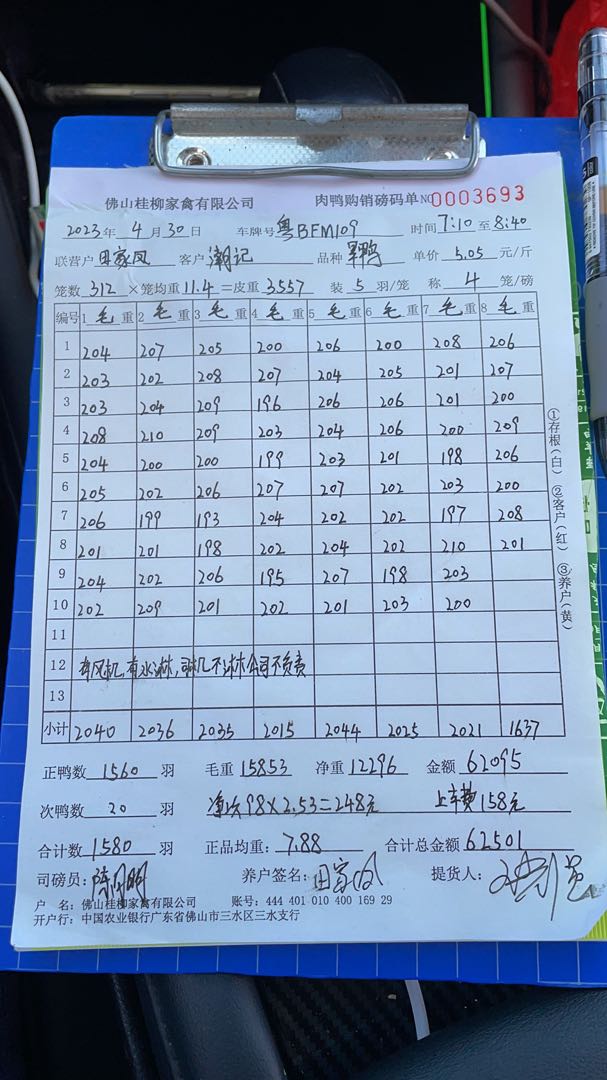 佛山桂柳家禽有限公司 肉鸭购销磅码单 NO 0003693
2023年 4月30日 车牌号 粤BFM109 时间 7:10 至 8:40
联营户 田家凤 客户 潮记 品种 单价 5.05 元/斤
笼数 312 ×笼均重 11.4 =皮重 3557 装 5 羽/笼 称 4 笼/磅
编号 1 毛 重 2 毛 重 3 毛 重 4 毛 重 5 毛 重 6 毛 重 7 毛 重 8 毛 重
1 204 207 205 200 206 200 208 206
2 203 202 208 207 204 205 201 207
3 203 204 209 196 206 206 201 200
4 208 210 209 203 204 206 200 209
5 204 200 200 199 203 201 198 206
6 205 202 206 207 207 202 203 200
7 206 199 193 204 202 202 197 208
8 201 201 198 202 204 202 210 201
9 204 202 206 195 207 198 203
10 202 209 201 202 201 203 200
11
12 有风机,有水淋,司机不淋公司不负责
13
小计 2040 2036 2035 2015 2044 2025 2021 1637
正鸭数 1560 羽 毛重 15853 净重 12296 金额 62095
次鸭数 20 羽 净次98×2.53=248元 上车费158元
合计数 1580 羽 正品均重: 7.88 合计总金额 62501
司磅员: 养户签名: 田家凤 提货人:
户 名: 佛山桂柳家禽有限公司 账号: 444 401 010 400 169 29
开户行: 中国农业银行广东省佛山市三水区三水支行
①存根(白) ②客户(红) ③养户(黄)